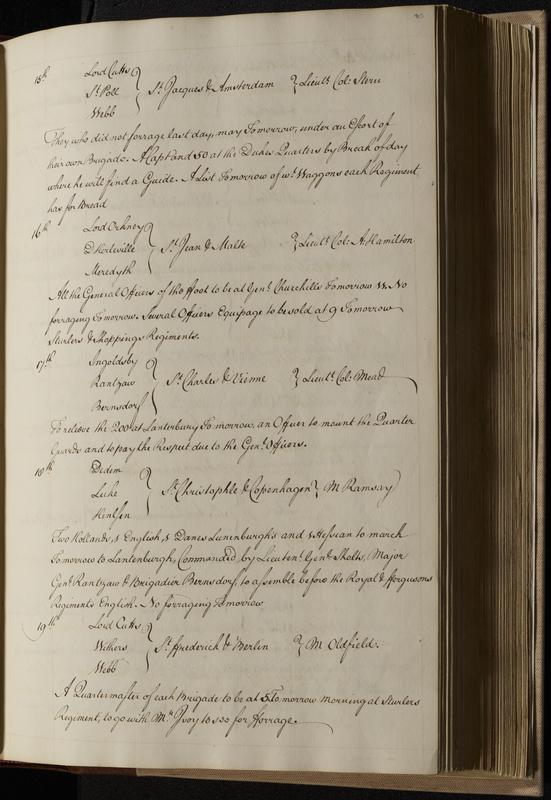 80
15th Lord Cutts
St. Poll } St. Jacques & Amsterdam } Lieutt. Col: Stern
Webb
They who did not forrage last day, may Tomorrow, under an Escort of
their own Brigade. A Captt. and 50 at the Dukes Quarters by Break of day
where he will find a Guide. A List Tomorrow of wt. Waggons each Regiment
has for Bread
16th Lord Orkney
D'Herleville } St. Jean & Malte } Lieutt. Col: A. Hamilton
Meredyth
All the General Officers of the Foot to be at Genl. Churchills Tomorrow 11. No
forraging Tomorrow. Several Officers Equipage to be sold at 9 Tomorrow
Sturlers & Shoppings Regiments.
17th Ingoldsby
Rantzaw } St. Charles & Vienne } Lieutt. Col: Mead
Bernsdorf
To relieve the 200 at Lanterburg Tomorrow, an Officer to mount the Quarter
Guards and to pay the Respect due to the Genl. Officers.
18th Dedem
Luke } St. Christophle & Copenhagen } M Ramsay
Hen
Two Hollands, 1 English, 1 Danes Lunenburghs and 1 Hessian to march
Tomorrow to Lantenburgh, Commanded by Lieutent. Genl. Sholts, Major
Genl. Rantzaw & Brigadier Bernsdorf, to assemble before the Royal & Hergusons
Regiments English. No forraging Tomorrow
19th Lord Cutts
Withers } St. Frederick & Berlin } M Oldfield.
Webb
A Quartermaster of each Brigade to be at 5 Tomorrow morning at Sturlers
Regiment, to go with Mr. Ivoy to see for Forrage.